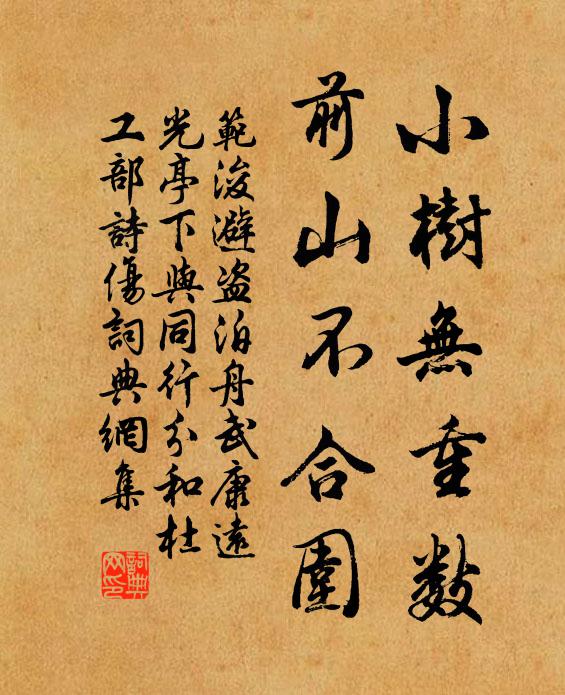 小樹無重數
前山不合圍
範浚避盜泊舟武康遠
光亭下與同行分和杜
工部詩傷詞典網集
詞典
网印